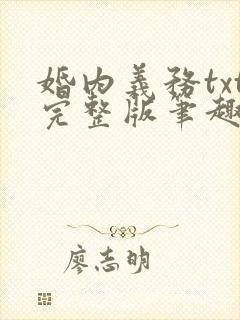 婚内義務txt
完整版筆趣
廖志明